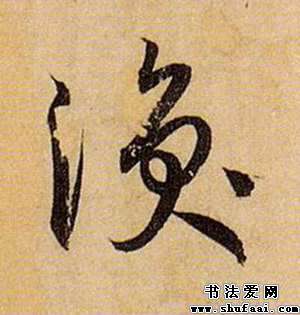 渙
书法爱网
www.shufaai.com